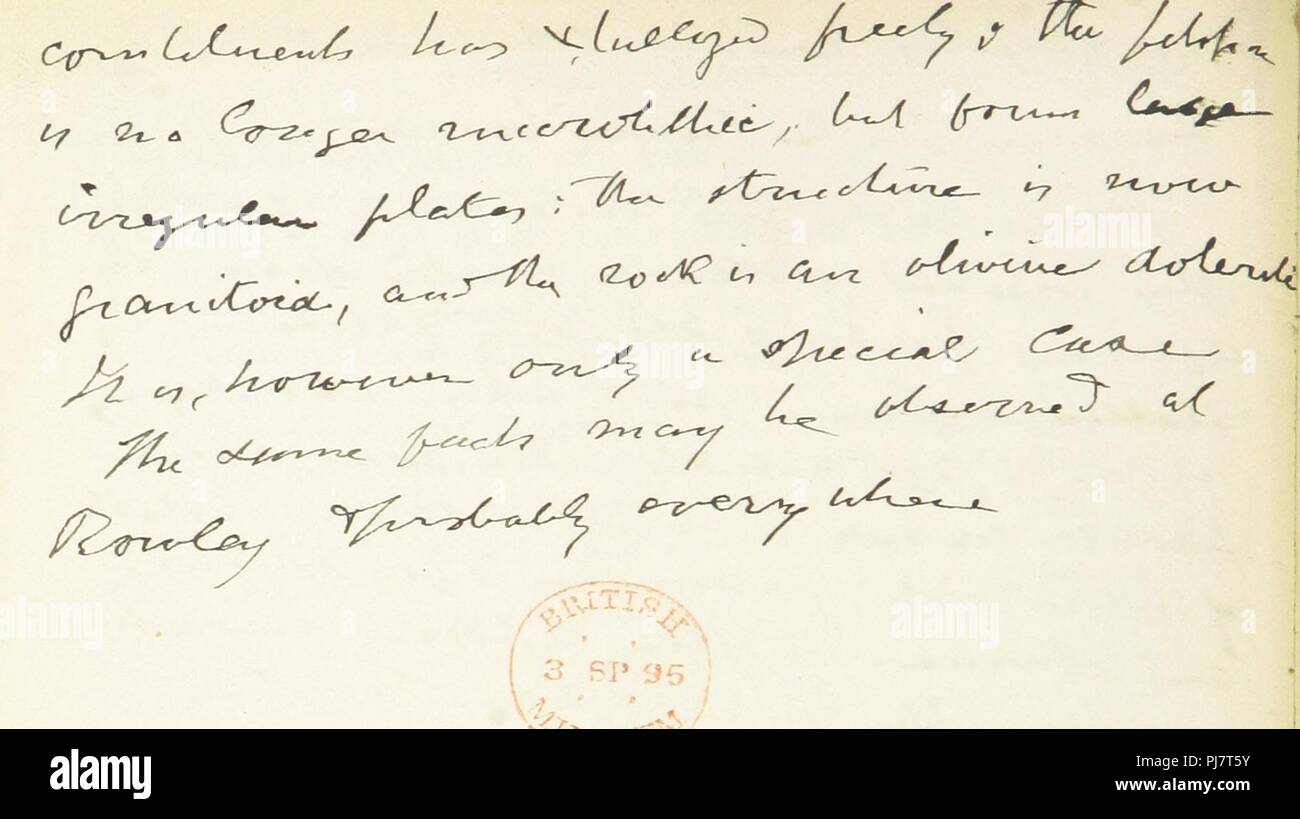 constituents has crystallized freely & the felspar
is no longer microlithic, but forms large
irregular plates; the structure is now
granitoid, and the rock is an olivine dolerite
It is, however only a special case
The same facts may be observed at
Rowley & probably everywhere
BRITISH
3 SP 95
MUSEUM
alamy
alamy
alamy
alamy
alamy
alamy
Image ID: PJ7T5Y
www.alamy.com